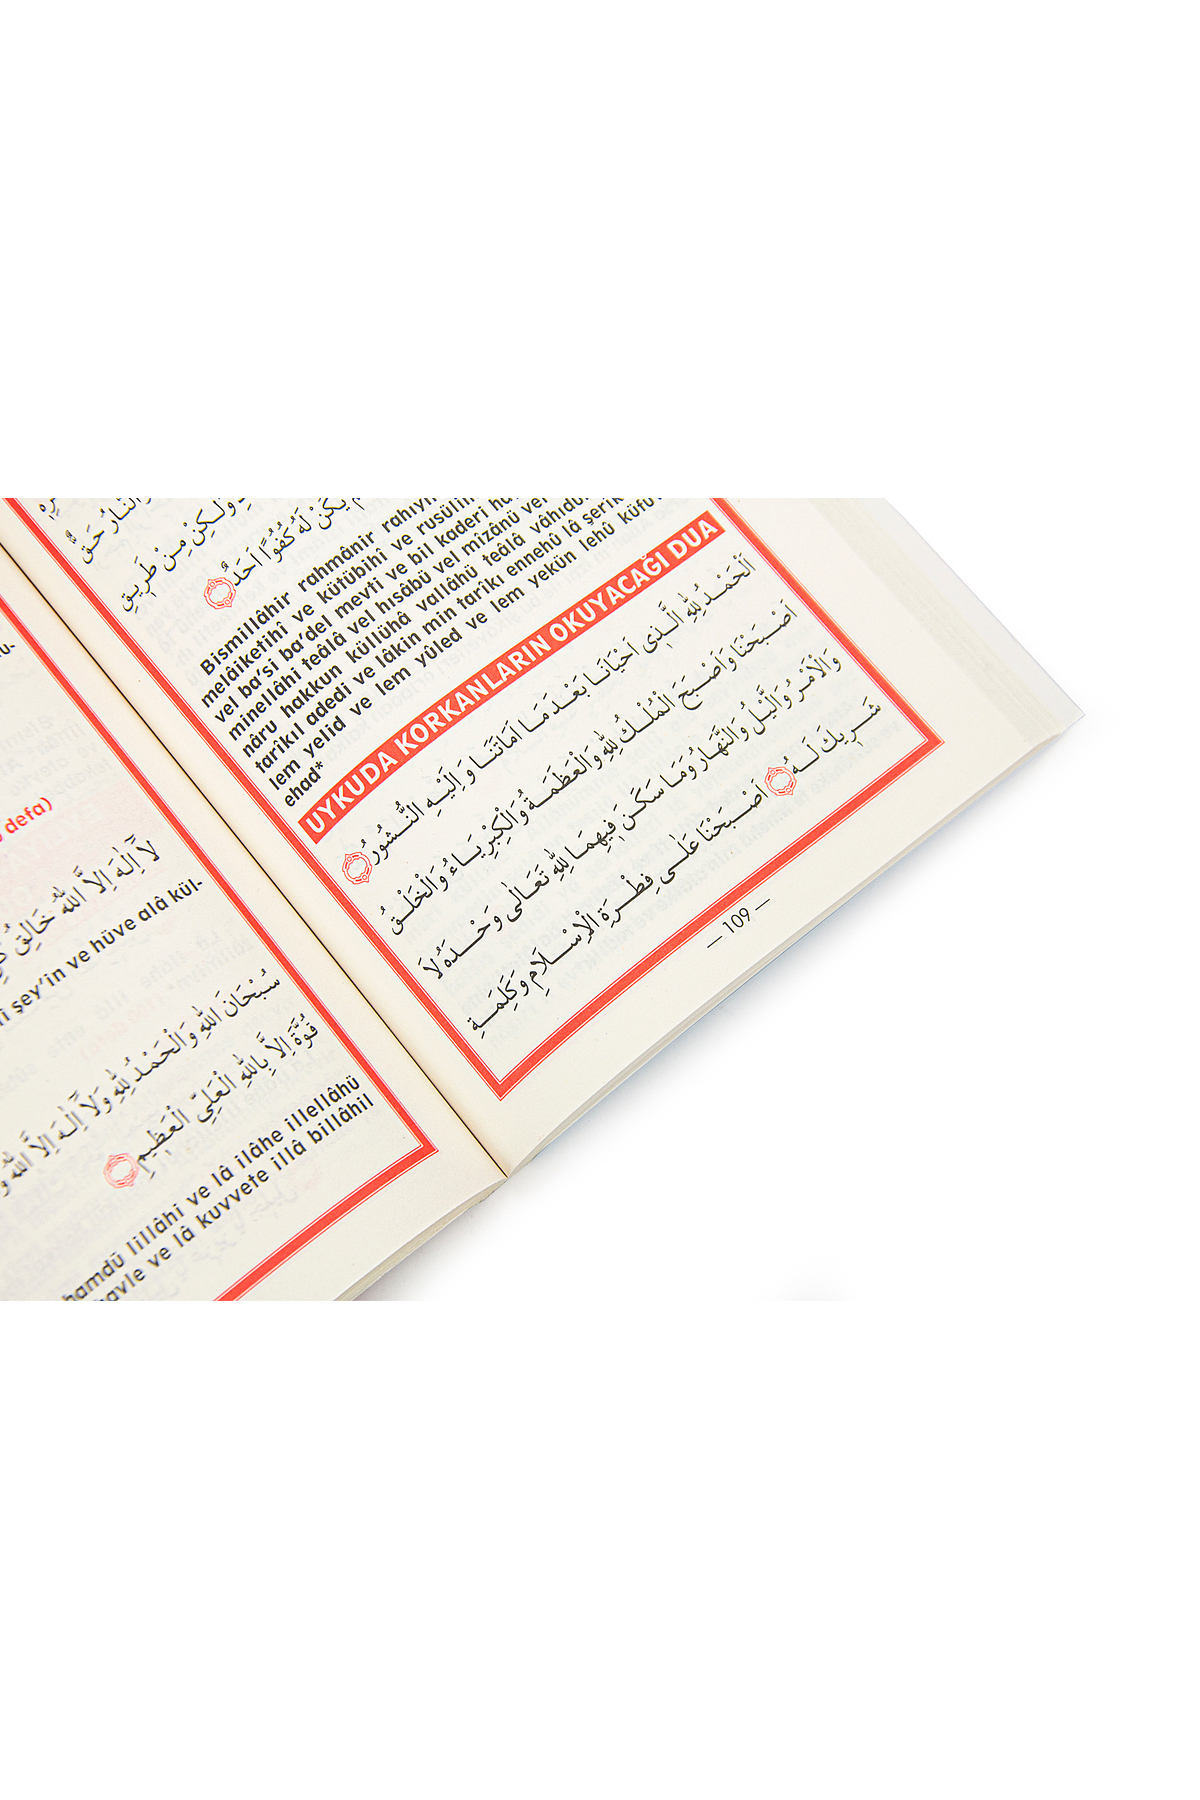 لَآ اِلٰهَ اِلَّا اللّٰهُ خَالِقُ
şey’in ve hüve alâ kül-
سُبْحَانَ اللّٰهِ وَالْحَمْدُ لِلّٰهِ وَلَآ اِلٰهَ اِلَّا اللّٰهُ
قُوَّةَ اِلَّا بِاللّٰهِ الْعَلِيِّ الْعَظِيمِ
hamdü lillâhi ve lâ ilâhe illellâhü
ve lâ kuvvete illâ billâhil
وَالنَّارُ حَقٌّ
وَلٰكِنْ مِنْ طَرِيقِ
يَكُنْ لَهُ كُفُوًا اَحَدٌ
Bismillâhir rahmânir
melâiketihî ve kütübihî ve
vel ba’si ba’del mevti ve bil kaderi
minellâhi teâlâ vel hısâbü vel mizânü
nâru hakkun küllühâ vallâhü teâlâ
tarîkıl adedi ve lâkin min tarîkı ennehû lâ
lem yelid ve lem yûled ve lem yekün lehû
ehad*
UYKUDA KORKANLARIN OKUYACAĞI DUA
اَلْحَمْدُ لِلّٰهِ الَّذِى اَحْيَانَا بَعْدَ مَا اَمَاتَنَا وَاِلَيْهِ النُّشُورُ
اَصْبَحْنَا وَاَصْبَحَ الْمُلْكُ لِلّٰهِ وَالْعَظَمَةُ وَالْكِبْرِيَاءُ وَالْخَلْقُ
وَالْاَمْرُ وَالَّيْلُ وَالنَّهَارُ وَمَا سَكَنَ فِيهِمَا لِلّٰهِ تَعَالٰى وَحْدَهُ لَا
شَرِيكَ لَهُ اَصْبَحْنَا عَلٰى فِطْرَةِ الْاِسْلَامِ وَكَلِمَةِ
— 109 —